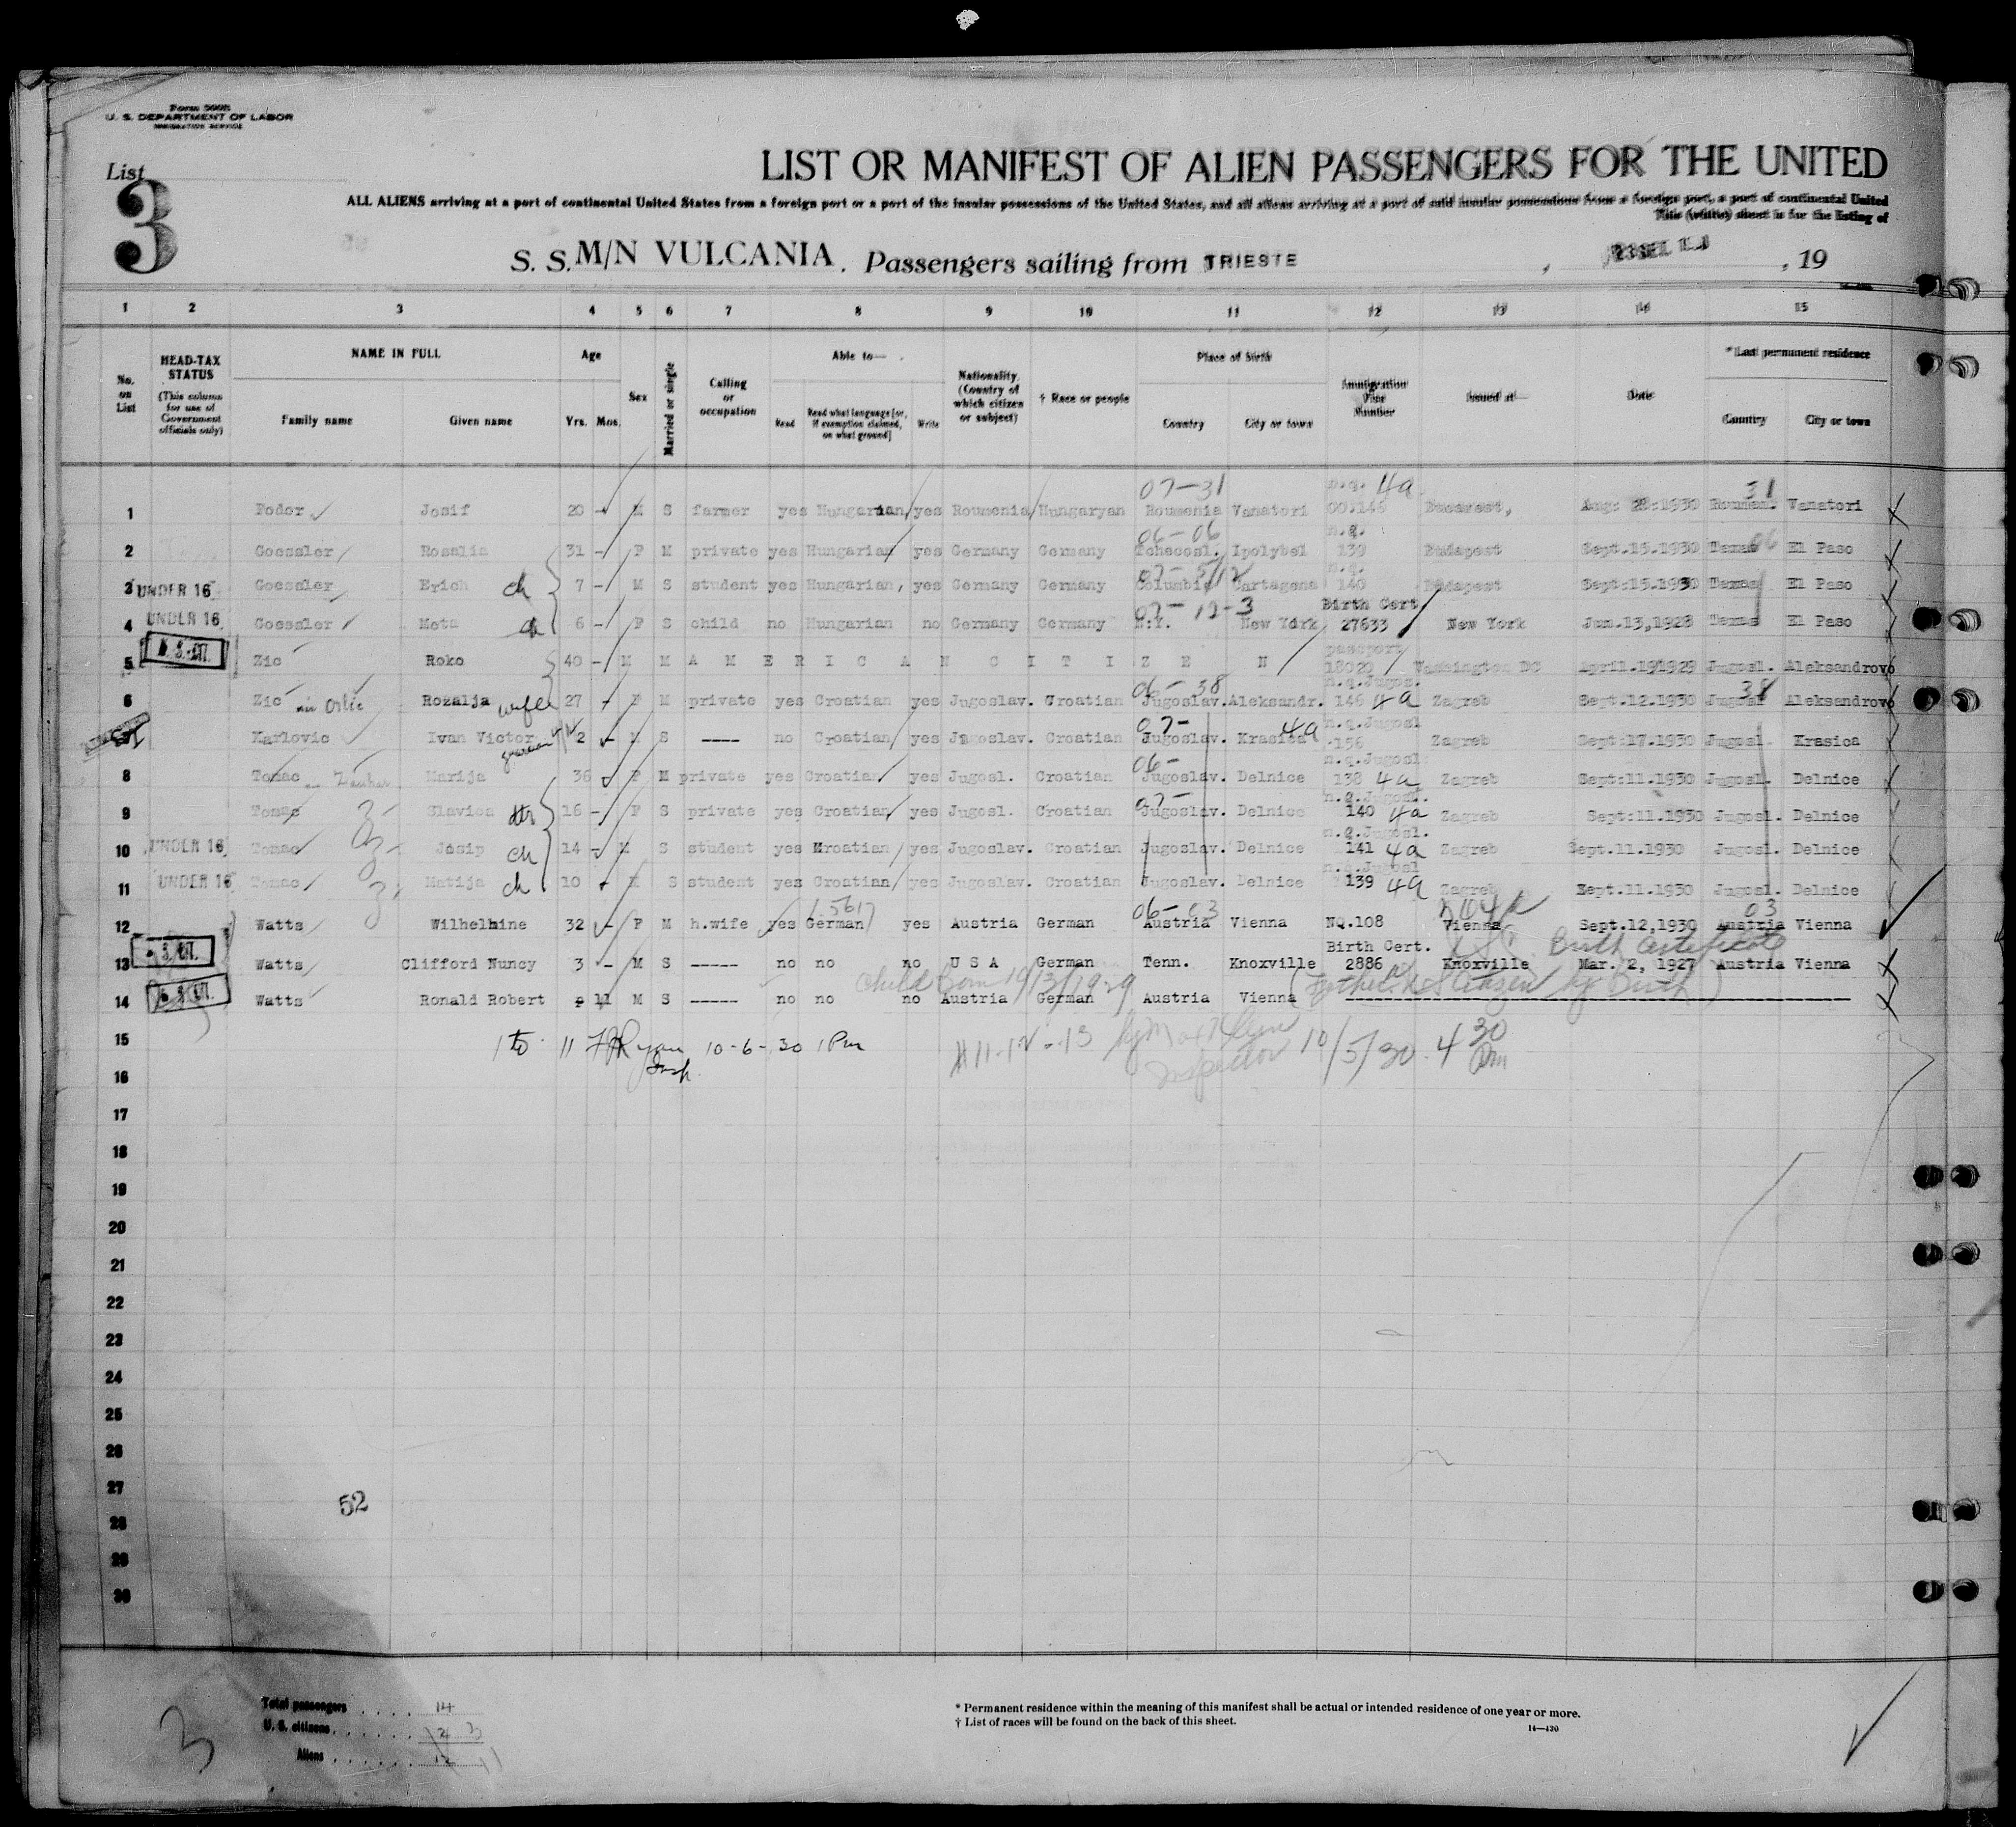 Form 500B
U. S. DEPARTMENT OF LABOR
IMMIGRATION SERVICE
List
3
LIST OR MANIFEST OF ALIEN PASSENGERS FOR THE UNITED
ALL ALIENS arriving at a port of continental United States from a foreign port or a port of the insular possessions of the United States, and all aliens arriving at a port of said insular possessions from a foreign port, a port of continental United
This (white) sheet is for the listing of
S. S. M/N VULCANIA. Passengers sailing from TRIESTE , , 19
1 2 3 4 5 6 7 8 9 10 11 12 13 14 15
No. on List
HEAD-TAX STATUS (This column for use of Government officials only)
NAME IN FULL Family name Given name
Age Yrs. Mos.
Sex
Married or single
Calling or occupation
Able to— Read Read what language [or, if exemption claimed, on what ground] Write
Nationality. (Country of which citizen or subject)
† Race or people
Place of birth Country City or town
Immigration Visa Number
Issued at—
Date
* Last permanent residence Country City or town
07-31 n.q. 4a 31
1 Fodor Josif 20 - M S farmer yes Hungarian, yes Roumenia Hungaryan Roumenia Vanatori 00.146 Bucarest, Aug: 28:1930 Rouman. Vanatori
06-06 n.q.
2 Goessler Rosalia 31 - F M private yes Hungarian yes Germany Germany Tchecosl. Ipolybel 139 Budapest Sept.15.1930 Texas 06 El Paso
n.q.
3 UNDER 16 Goessler Erich ch 7 - M S student yes Hungarian, yes Germany Germany Columbia Cartagena 140 Budapest Sept:15.1930 Texas El Paso
07-12-3 Birth Cert
4 UNDER 16 Goessler Meta ch 6 - F S child no Hungarian no Germany Germany N.Y. New York 27633 New York Jun.13,1928 Texas El Paso
passport
5 U.S.CIT. Zic Roko 40 - M M AMERICAN CITIZEN 18020 Washington DC April.191929 Jugosl. Aleksandrovo
06-38 n.q.Jugos. 38
6 Zic Rozalja wife 27 - F M private yes Croatian yes Jugoslav. Croatian Jugoslav. Aleksandr. 146 4a Zagreb Sept.12.1930 Jugosl Aleksandrovo
07- 4a n.q.Jugosl
7 Karlovic Ivan Victor 2 - M S ---- no Croatian yes Jugoslav. Croatian Jugoslav. Krasica 156 Zagreb Sept:17.1930 Jugosl. Krasica
06- n.q.Jugosl
8 Tomac Marija 36 F M private yes Croatian yes Jugosl. Croatian Jugoslav. Delnice 138 4a Zagreb Sept:11.1930 Jugosl. Delnice
07- n.q.Jugosl.
9 Tomac Slavica dtr 16 - F S private yes Croatian yes Jugosl. Croatian Jugoslav. Delnice 140 4a Zagreb Sept:11.1930 Jugosl. Delnice
n.q.Jugosl.
10 UNDER 16 Tomac Josip ch 14 - M S student yes Kroatian yes Jugoslav. Croatian Jugoslav. Delnice 141 4a Zagreb Sept.11.1930 Jugosl. Delnice
n.q.Jugosl
11 UNDER 16 Tomac Matija ch 10 - M S student yes Croatian yes Jugoslav. Croatian Jugoslav. Delnice 139 4a Zagreb Sept.11.1930 Jugosl. Delnice
06-03 03
12 Watts Wilhelmine 32 - F M h.wife yes German yes Austria German Austria Vienna NQ.108 Vienna Sept.12,1930 Austria Vienna
Birth Cert. Birth Certificate
13 U.S.CIT. Watts Clifford Nuncy 3 - M S ----- no no no U S A German Tenn. Knoxville 2886 Knoxville Mar. 2, 1927 Austria Vienna
Child born 10/13/1929
14 U.S.CIT. Watts Ronald Robert 11 M S ----- no no no Austria German Austria Vienna (Father US Citizen by Birth)
15 1 to 11 Ryan Insp. 10-6-30 1 Pm Inspector 10/5/30 4 30 Pm
16
17
18
19
20
21
22
23
24
25
26
27
52
28
29
30
Total passengers 14
U. S. citizens 3
Aliens 11
3
* Permanent residence within the meaning of this manifest shall be actual or intended residence of one year or more.
† List of races will be found on the back of this sheet.
14—430